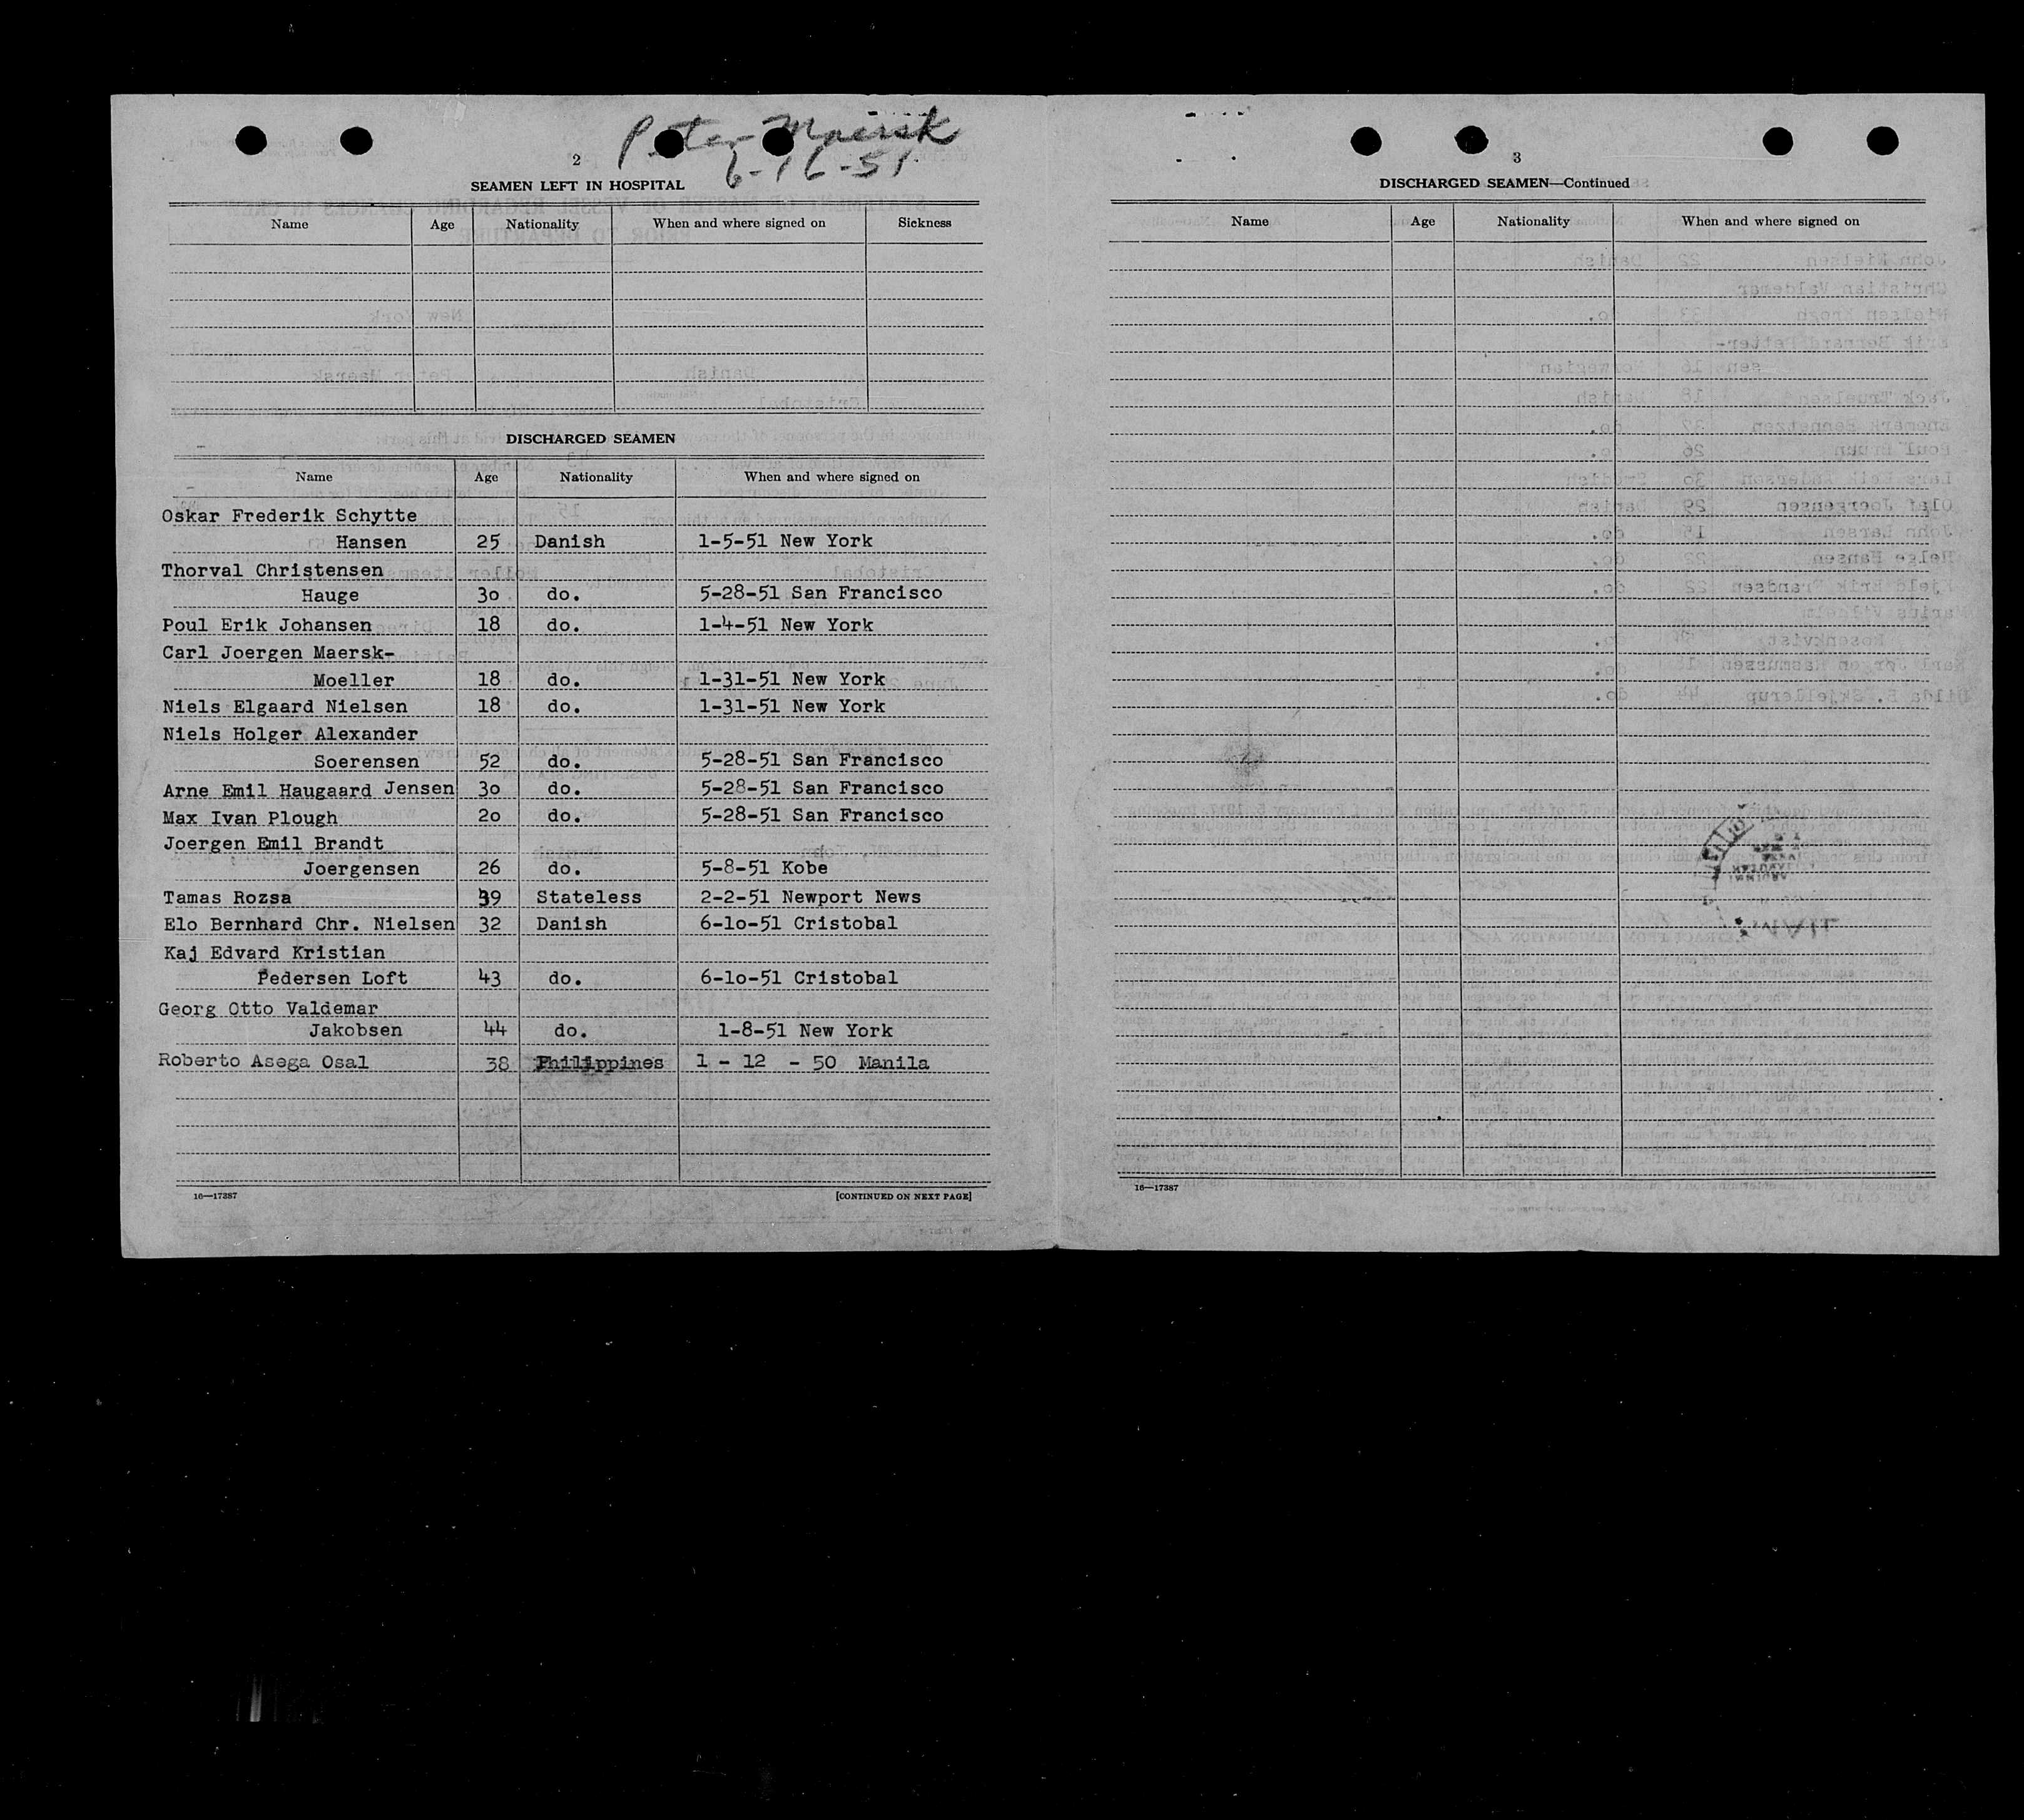 Peter Maersk
6-16-51
2
SEAMEN LEFT IN HOSPITAL
Name Age Nationality When and where signed on Sickness
DISCHARGED SEAMEN
Name Age Nationality When and where signed on
Oskar Frederik Schytte
Hansen 25 Danish 1-5-51 New York
Thorval Christensen
Hauge 30 do. 5-28-51 San Francisco
Poul Erik Johansen 18 do. 1-4-51 New York
Carl Joergen Maersk-
Moeller 18 do. 1-31-51 New York
Niels Elgaard Nielsen 18 do. 1-31-51 New York
Niels Holger Alexander
Soerensen 52 do. 5-28-51 San Francisco
Arne Emil Haugaard Jensen 30 do. 5-28-51 San Francisco
Max Ivan Plough 20 do. 5-28-51 San Francisco
Joergen Emil Brandt
Joergensen 26 do. 5-8-51 Kobe
Tamas Rozsa 39 Stateless 2-2-51 Newport News
Elo Bernhard Chr. Nielsen 32 Danish 6-10-51 Cristobal
Kaj Edvard Kristian
Pedersen Loft 43 do. 6-10-51 Cristobal
Georg Otto Valdemar
Jakobsen 44 do. 1-8-51 New York
Roberto Asega Osal 38 Philippines 1 - 12 - 50 Manila
16—17387 [CONTINUED ON NEXT PAGE]
3
DISCHARGED SEAMEN—Continued
Name Age Nationality When and where signed on
16—17387